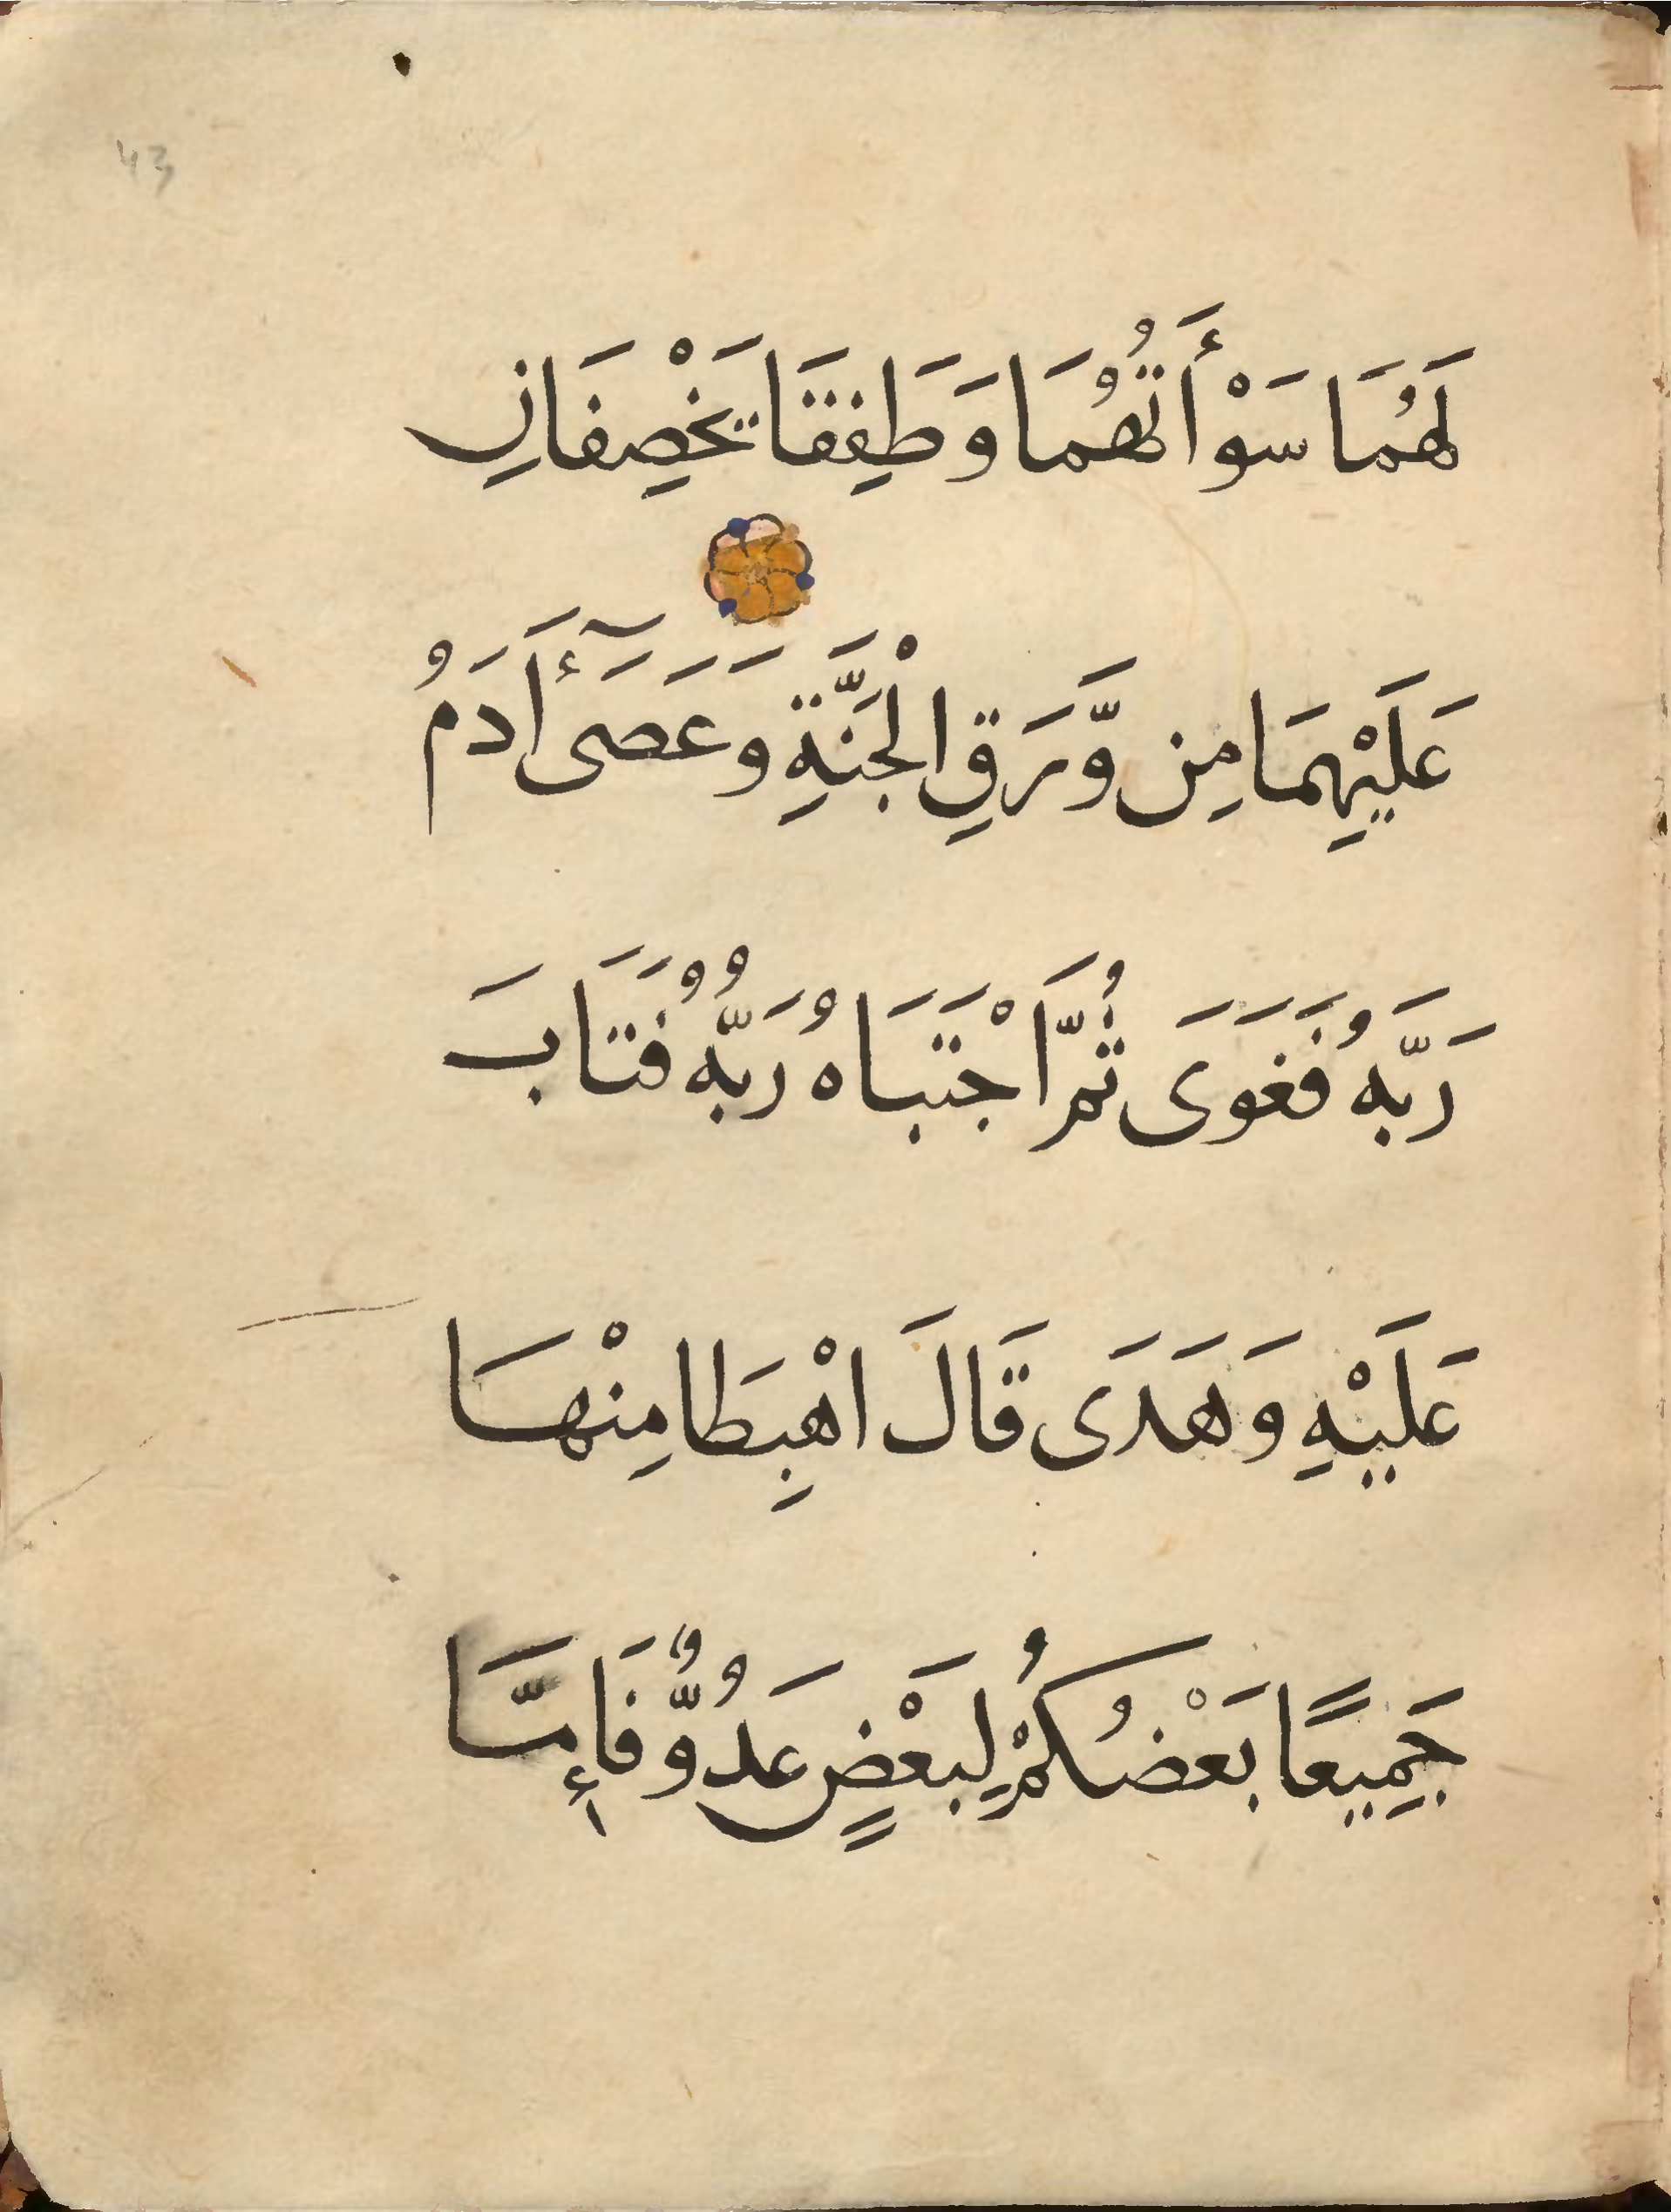 43
لَهُمَا سَوْأَتُهُمَا وَطَفِقَا يَخْصِفَانِ
عَلَيْهِمَا مِن وَّرَقِ الْجَنَّةِ وَعَصَىٓ أَدَمُ
رَبَّهُ فَغَوَى ثُمَّ اجْتَبَاهُ رَبُّهُ فَتَابَ
عَلَيْهِ وَهَدَى قَالَ اهْبِطَا مِنْهَا
جَمِيعًا بَعْضُكُمْ لِبَعْضٍ عَدُوٌّ فَإِمَّا